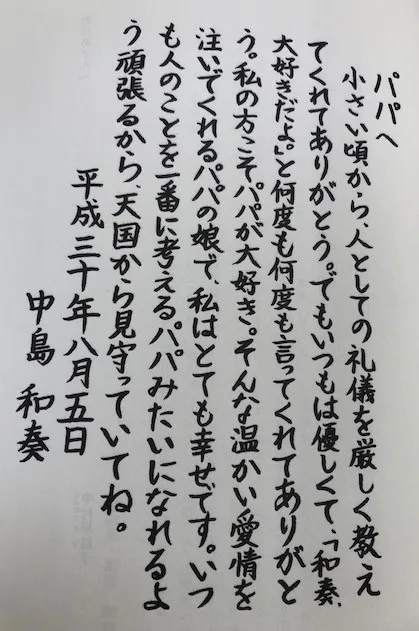 パパへ
小さい頃から、人としての礼儀を厳しく教え
てくれてありがとう。でもいつもは優しくて、「和奏、
大好きだよ。」と何度も何度も言ってくれてありがと
う。私の方こそパパが大好き。そんな温かい愛情を
注いでくれるパパの娘で、私はとても幸せです。いつ
も人のことを一番に考えるパパみたいになれるよ
う頑張るから、天国から見守っていてね。
平成三十年八月五日
中島和奏